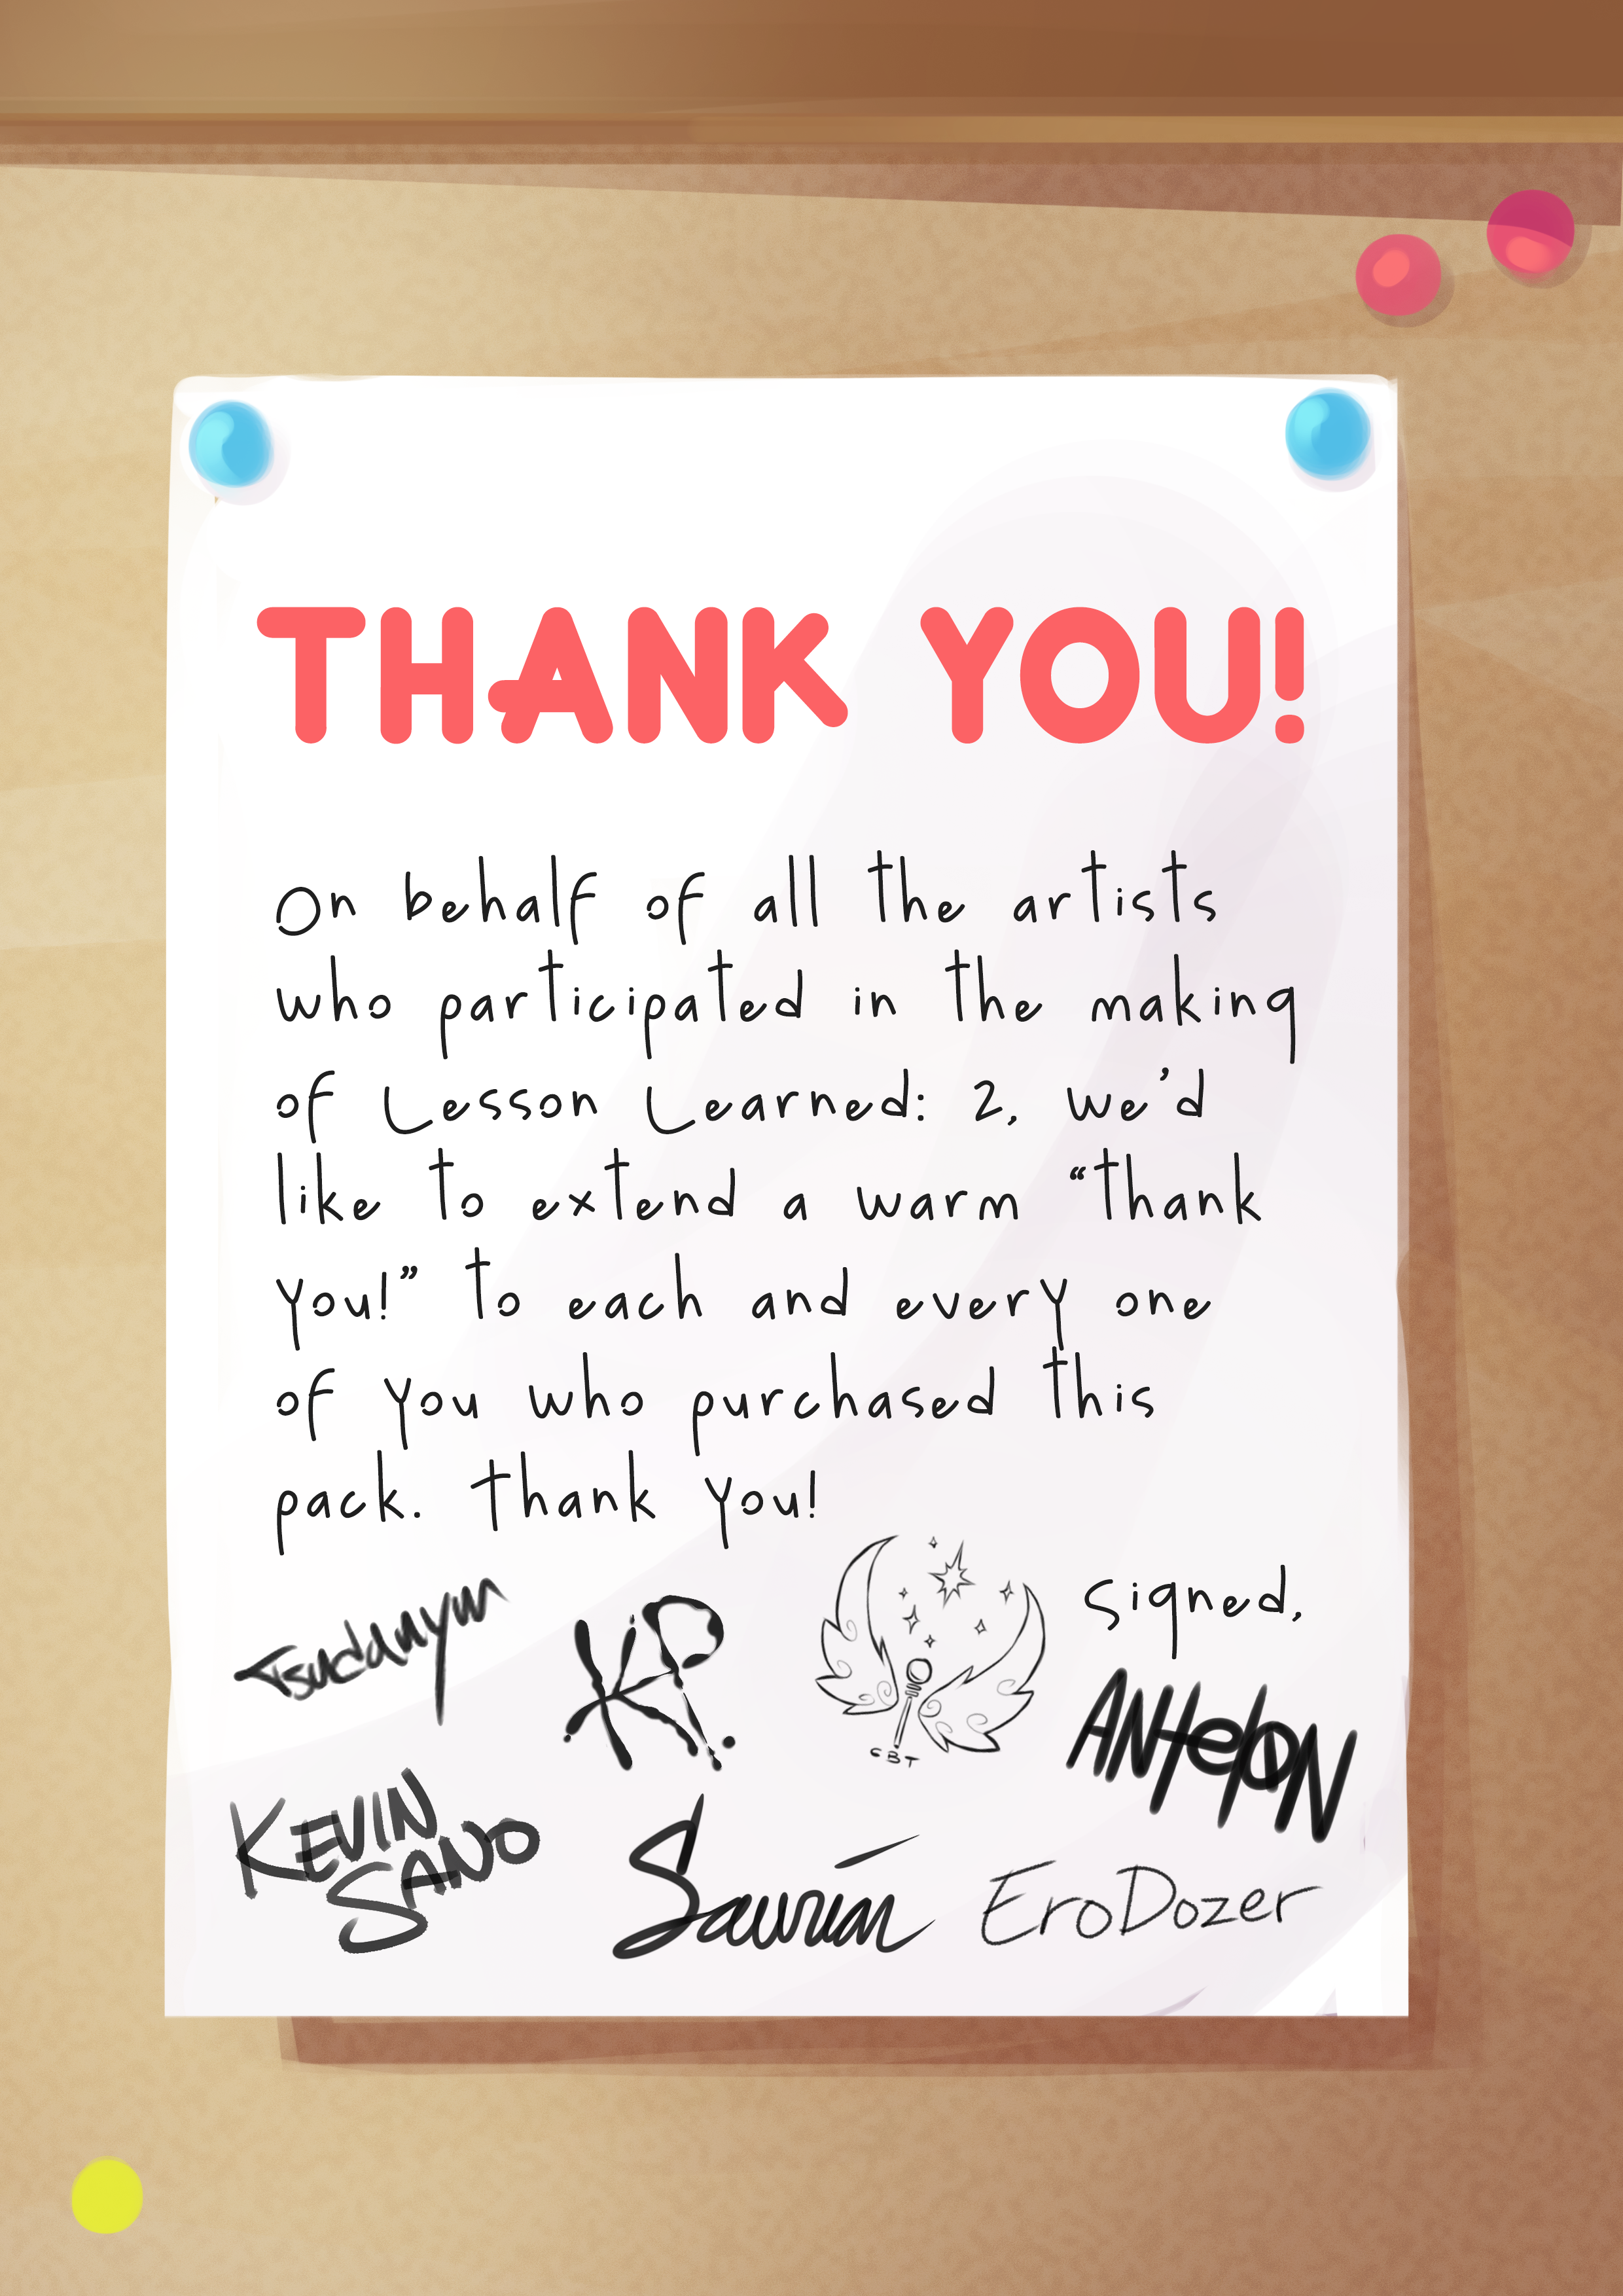 THANK YOU!
On behalf of all the artists
who participated in the making
of Lesson Learned: 2, we'd
like to extend a warm “thank
you!” to each and every one
of you who purchased this
pack. Thank you!
Signed,
Tsudanym
KP.
CBT
ANtelON
KEVIN
SANO
Saurian
EroDozer